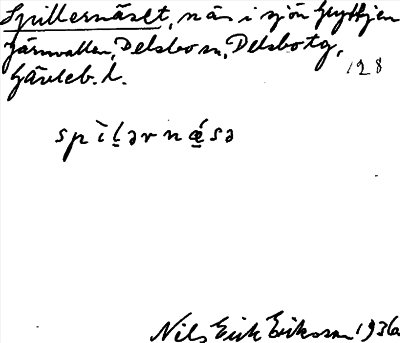 Spillernäset, näs i sjön Gryttjen
Järnvallen, Delsbo sn, Delsbo tg,
Gävleb. l.
128
spìḷərnǽsə
Nils Erik Eriksson 1936